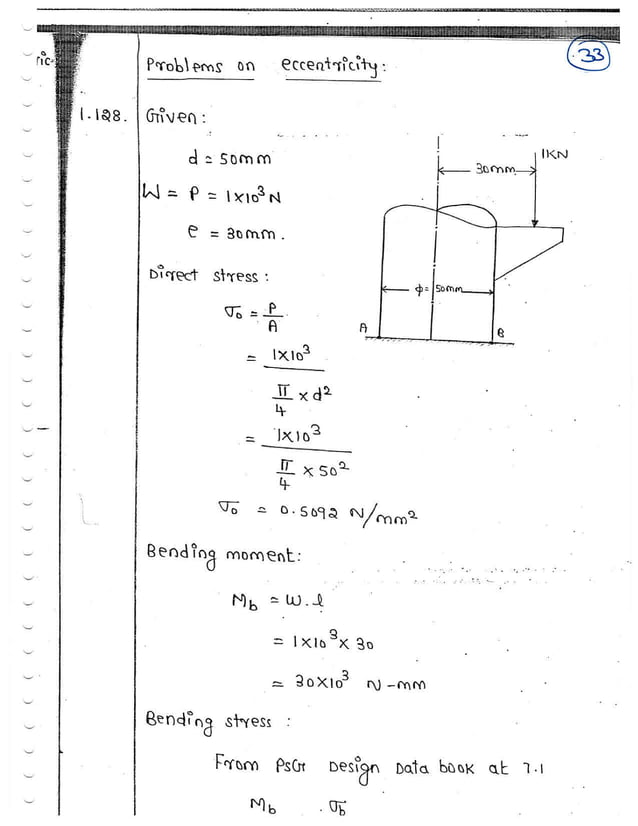 33
ric-
Problems on eccentricity:
1.128. Given:
d = 50mm
W = P = 1×10³ N
e = 30mm.
1KN
30mm
ϕ= 50mm
A
B
Direct stress:
σ₀ = P/A
= 1×10³
π/4 × d²
= 1×10³
π/4 × 50²
σ₀ = 0.5092 N/mm²
Bending moment:
M_b = W.l
= 1×10³ × 30
= 30×10³ N-mm
Bending stress :
From PSG Design Data book at 7.1
M_b σ_b